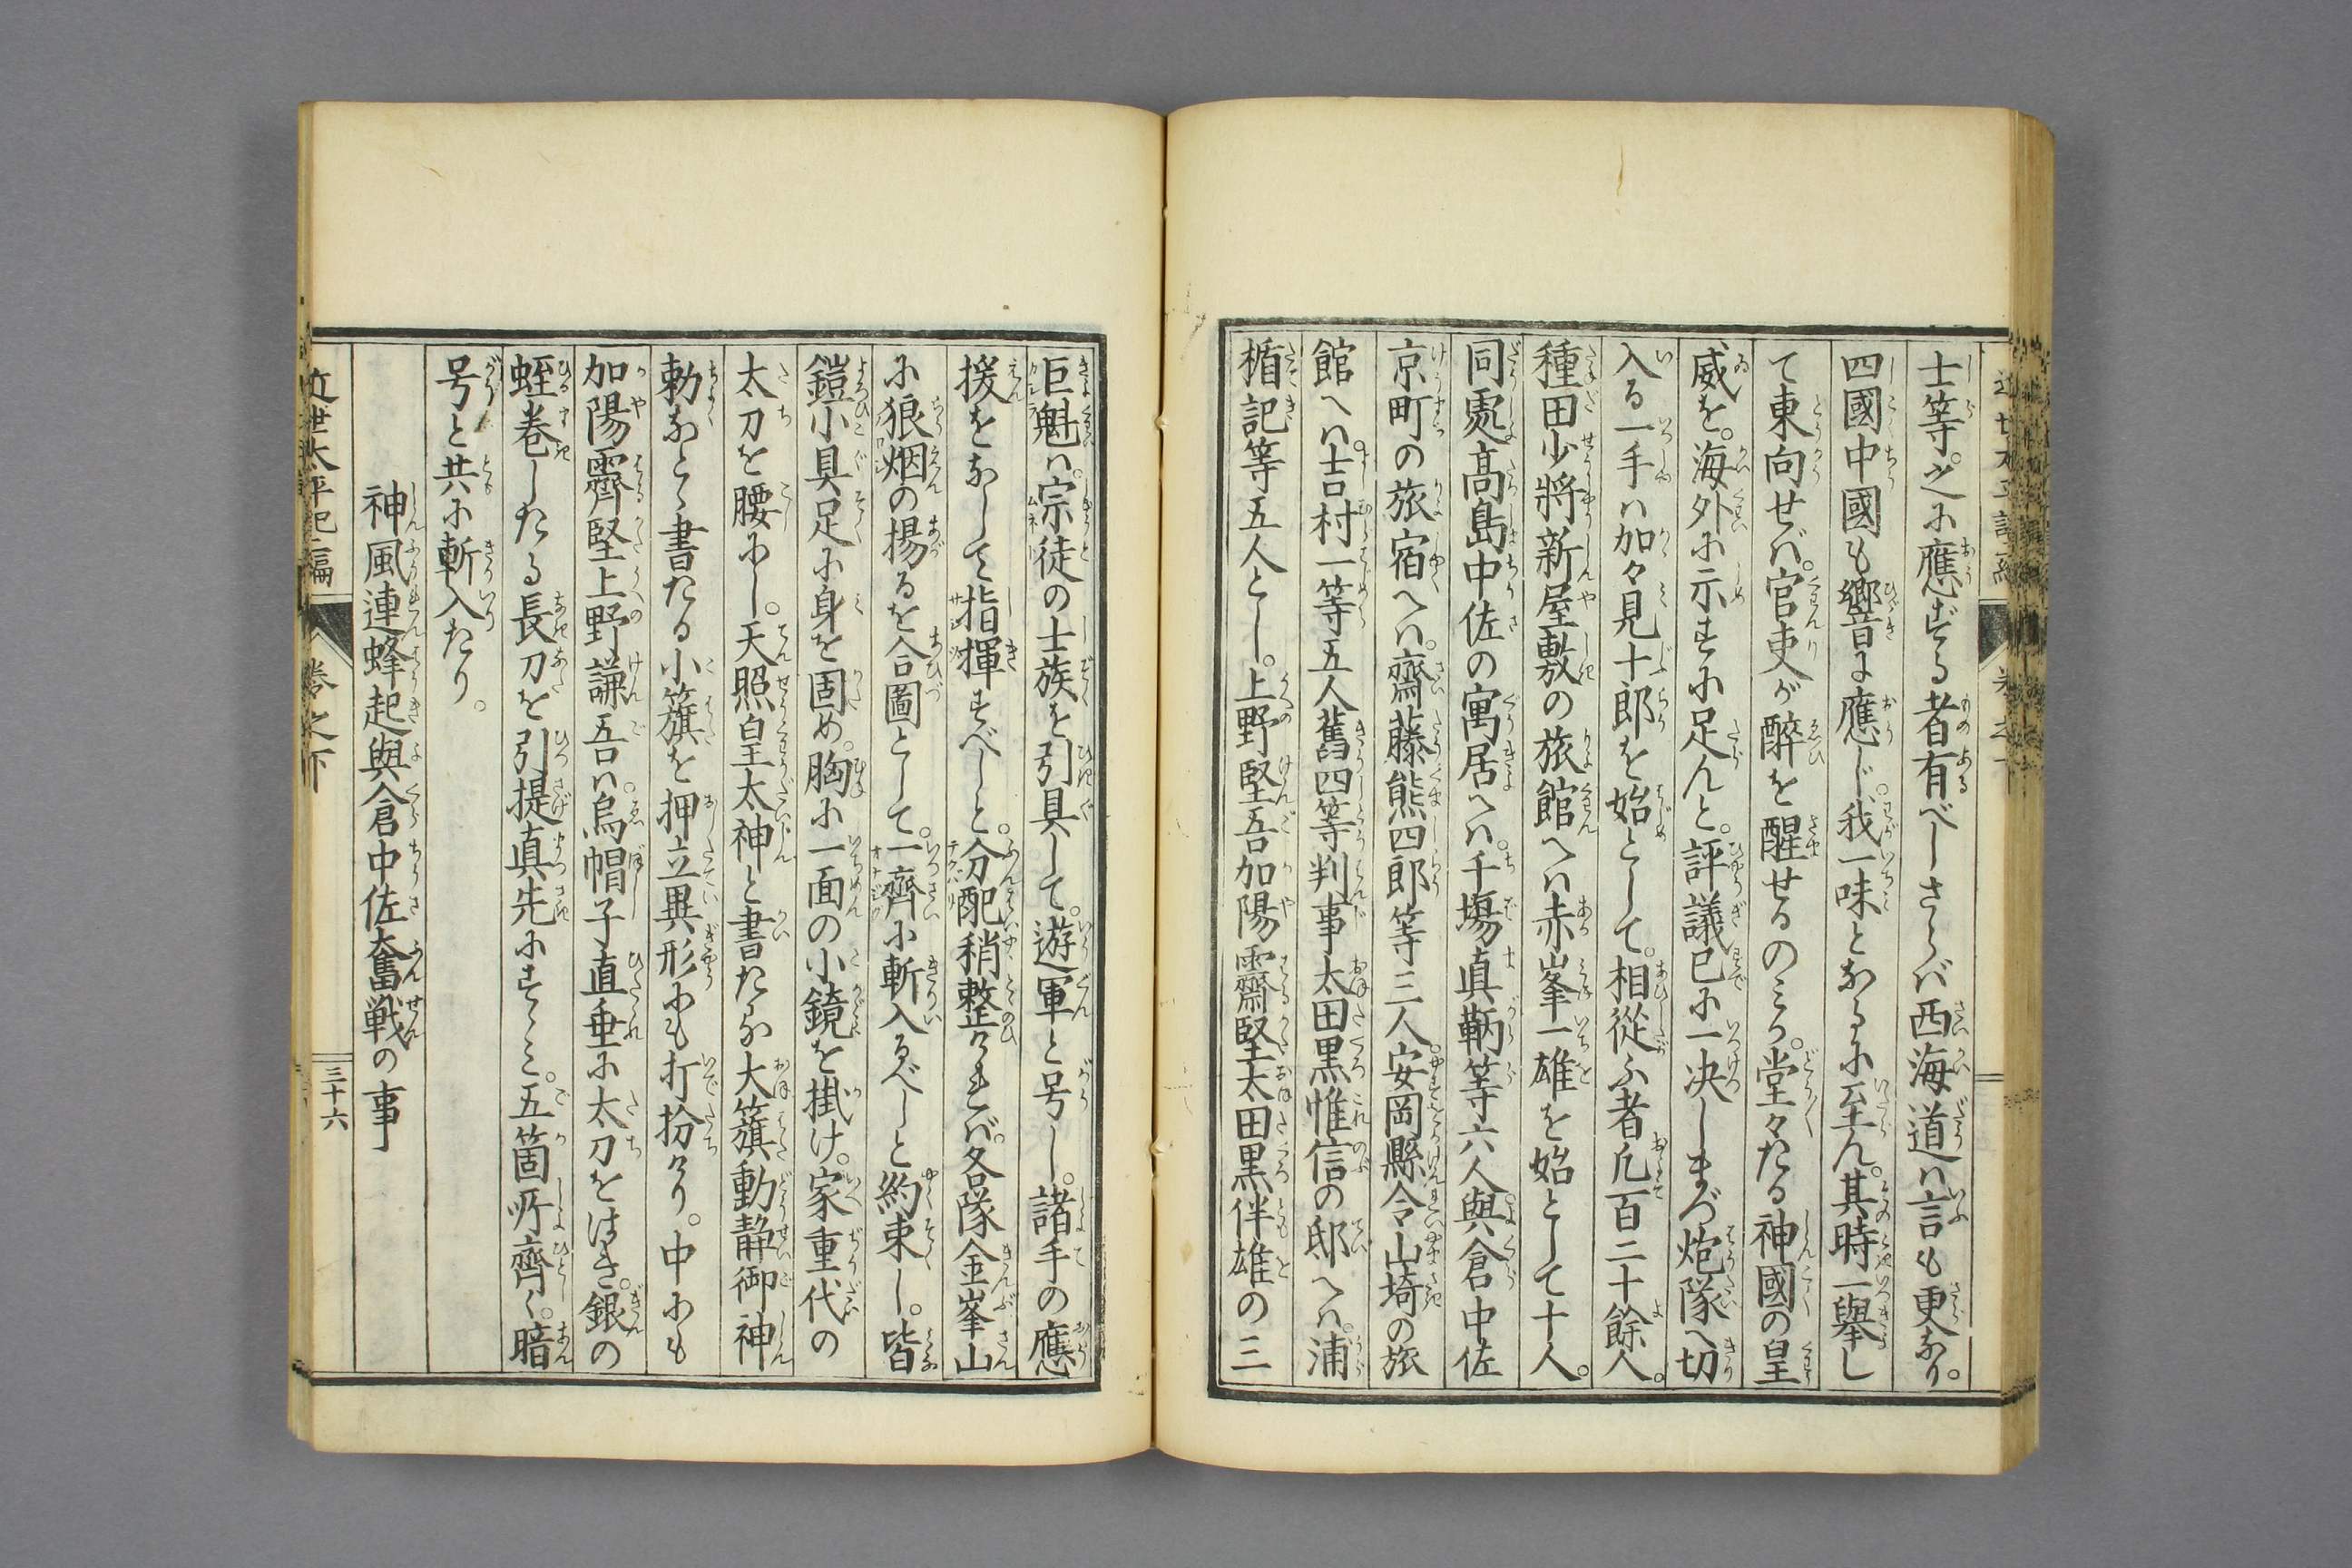 士等之に應ずる者有べしさらバ西海道ハ言も更なり。
四國中國も響に應じ。我一味となるに至ん。其時一擧し
て東向せバ。官吏が醉を醒せるのミか。堂々たる神國の皇
威を。海外に示すに足んと。評議已に一决しまづ炮隊へ切
入る一手ハ加々見十郎を始として。相從ふ者凢百二十餘人。
種田少將新屋敷の旅館へハ赤峯一雄を始として十人。
同處髙島中佐の寓居へハ。千塲真鞆等六人。與倉中佐
京町の旅宿へハ。齋藤熊四郎等三人。安岡縣令山埼の旅
館へハ。吉村一等五人舊四等判事太田黒惟信の邸へハ。浦
楯記等五人とし。上野堅吾加陽霽堅太田黒伴雄の三
巨魁ハ。宗徒の士族を引具して。遊軍と号し。諸手の應
援をなして指揮すべしと。分配稍整けれバ。各隊金峯山
に狼烟の揚るを合圖として。一齊に斬入るべしと約束し。皆
鎧小具足に身を固め。胸に一面の小鏡を掛け。家重代の
太刀を腰にし。天照皇太神と書たる大籏動静御神
勅なとゝ書たる小籏を押立異形にも打扮けり。中にも
加陽霽堅上野謙吾ハ。烏帽子直垂に太刀をはき。銀の
蛭巻したる長刀を引提真先にすゝミ。五箇所齊く。暗
号と共に斬入たり。
神風連蜂起與倉中佐奮戦の事
近世太平記二編
巻之下
三十六